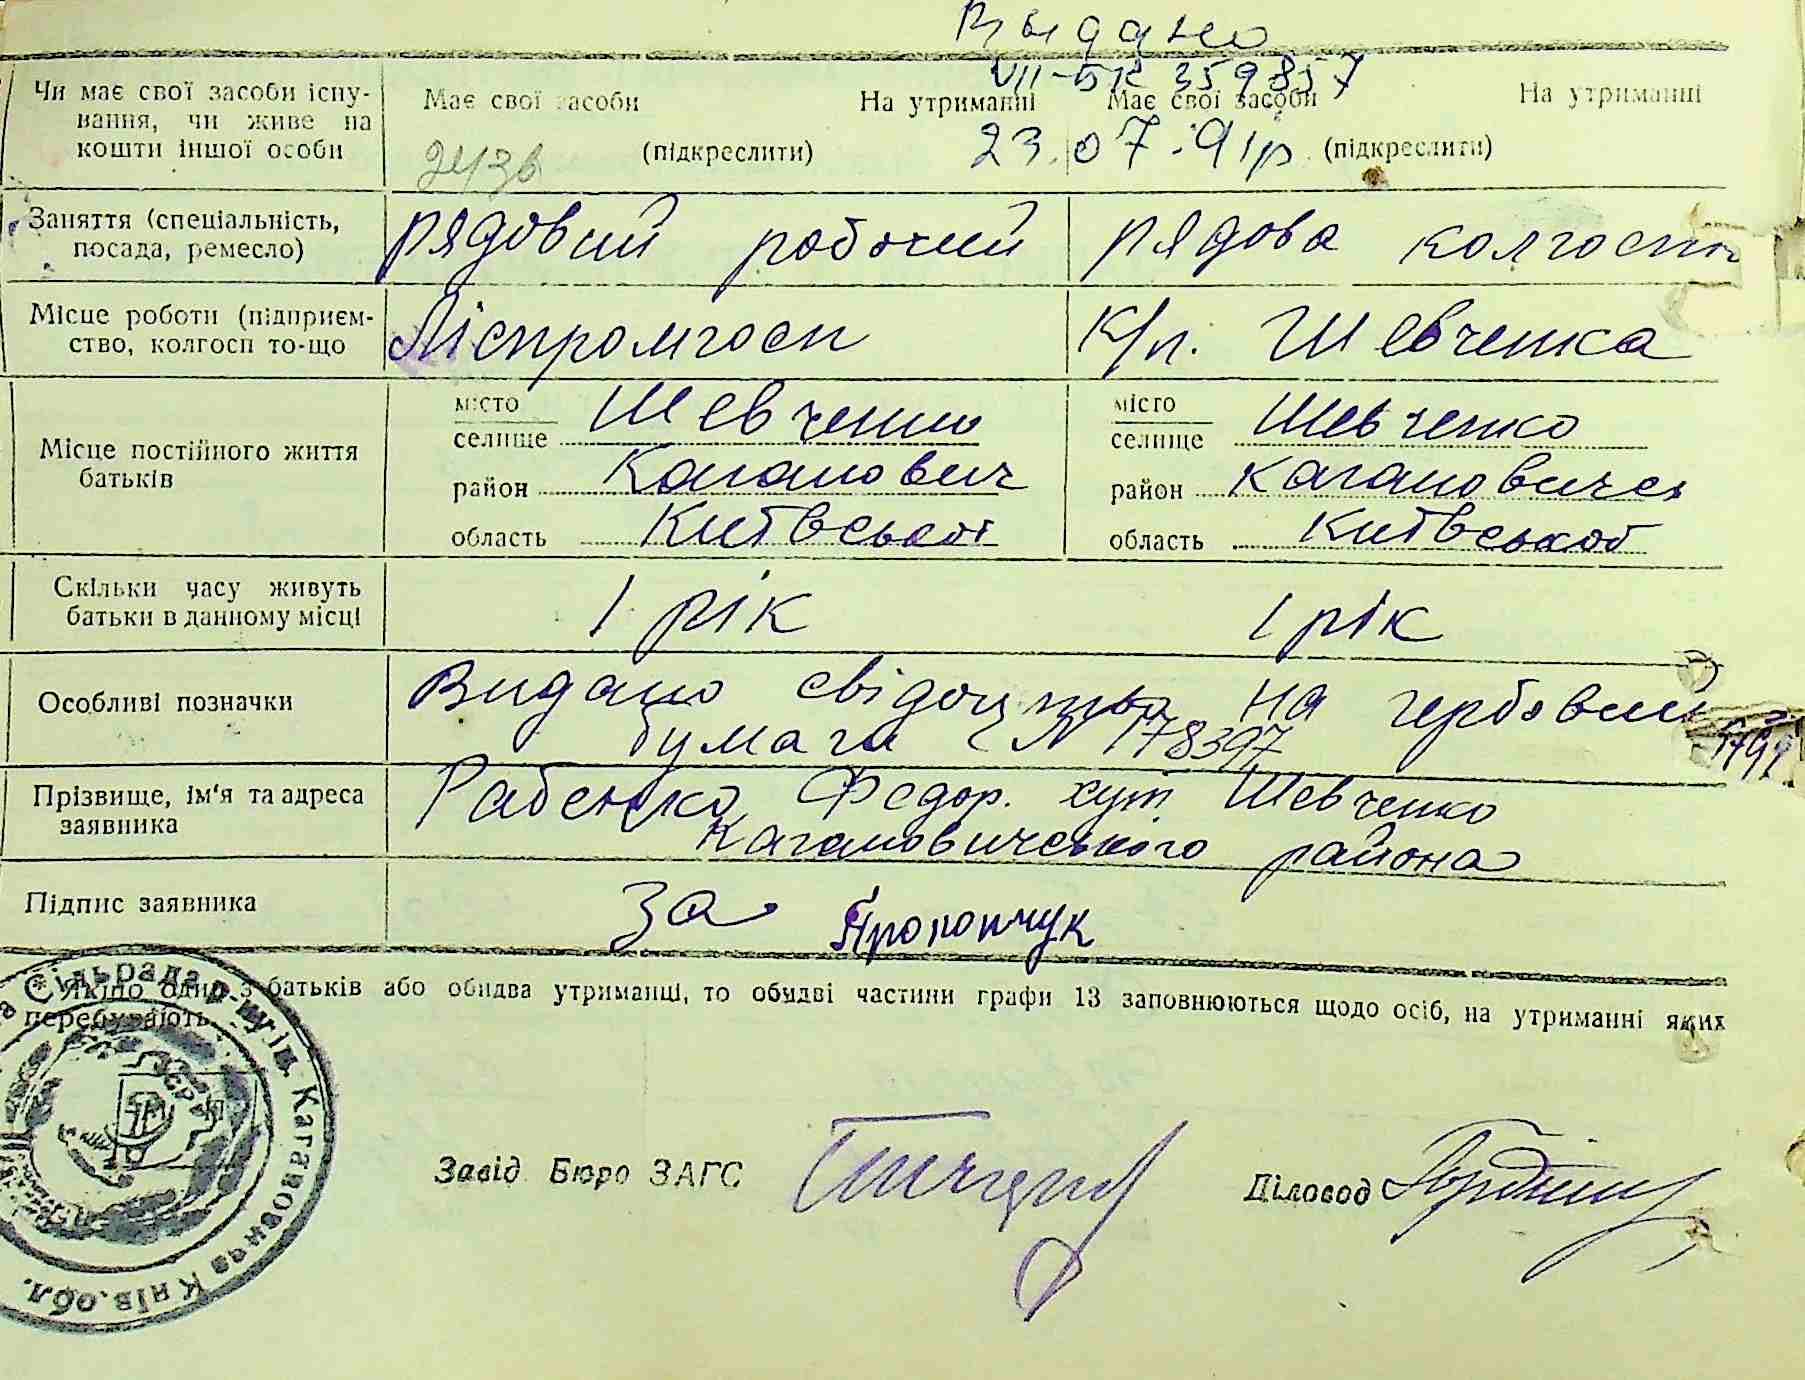 Выдано
VII-БК 359857
23.07.91р
Чи має свої засоби існу-
вання, чи живе на
кошти іншої особи
Має свої засоби На утриманні Має свої засоби На утриманні
(підкреслити) (підкреслити)
Заняття (спеціальність,
посада, ремесло)
рядовий робочий рядова
Місце роботи (підприєм-
ство, колгосп то-що
Ліспромгосп к/п. Шевченка
Місце постійного життя
батьків
місто Шевченко місто Шевченко
селище селище
район Каганович район
область Київської область Київської
Скільки часу живуть
батьки в данному місці
1 рік 1 рік
Особливі позначки
Видано свідоцтво на гербовій
бумаги N 178397
Прізвище, ім'я та адреса
заявника
Рабенко Федор. хут Шевченко
Кагановичського района
Підпис заявника
За Прокопчук
* Якщо один з батьків або обидва утриманці, то обидві частини графи 13 заповнюються щодо осіб, на утриманні яких
перебувають
Сільрада р-ку ів. Кагановича Київ. обл.
Завід Бюро ЗАГС Діловод